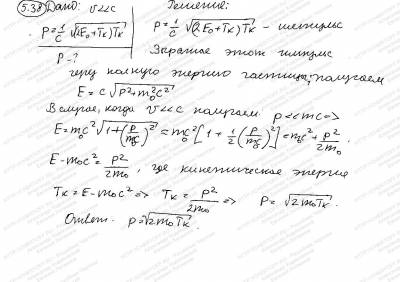 5.38 Дано: v<<c Решение:
p = 1/c √((2E₀+Tк)Tк) p = 1/c √((2E₀+Tк)Tк) - импульс
p - ? Выражая этот импульс
через полную энергию частицы, получаем
E = c√(p²+m₀²c²)
В случае, когда v<<c получаем p<<mc =>
E = m₀c²√(1+(p/m₀c)²) = m₀c²[1 + 1/2(p/m₀c)²] = m₀c² + p²/2m₀,
E - m₀c² = p²/2m₀, где кинетическая энергия
Tк = E - m₀c² => Tк = p²/2m₀ => p = √(2m₀Tк)
Ответ: p = √(2m₀Tк)